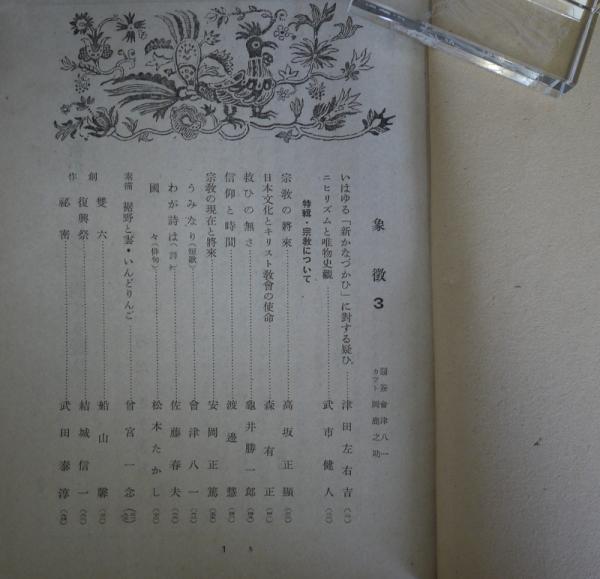 象徴 3
題簽 會津八一
カツト 岡鹿之助
いはゆる「新かなづかひ」に對する疑ひ 津田左右吉
ニヒリズムと唯物史觀 武市健人
特輯・宗教について
宗教の將來 高坂正顯
日本文化とキリスト教會の使命 森有正
救ひの無さ 龜井勝一郎
信仰と時間 渡邊慧
宗教の現在と將來 安岡正篤
うみなり(短歌) 會津八一
わが詩は(詩) 佐藤春夫
國々(俳句) 松本たかし
素描 裾野と雲・いんどりんご 曾宮一念
創作
雙六 船山馨
復興祭 結城信一
祕密 武田泰淳
1